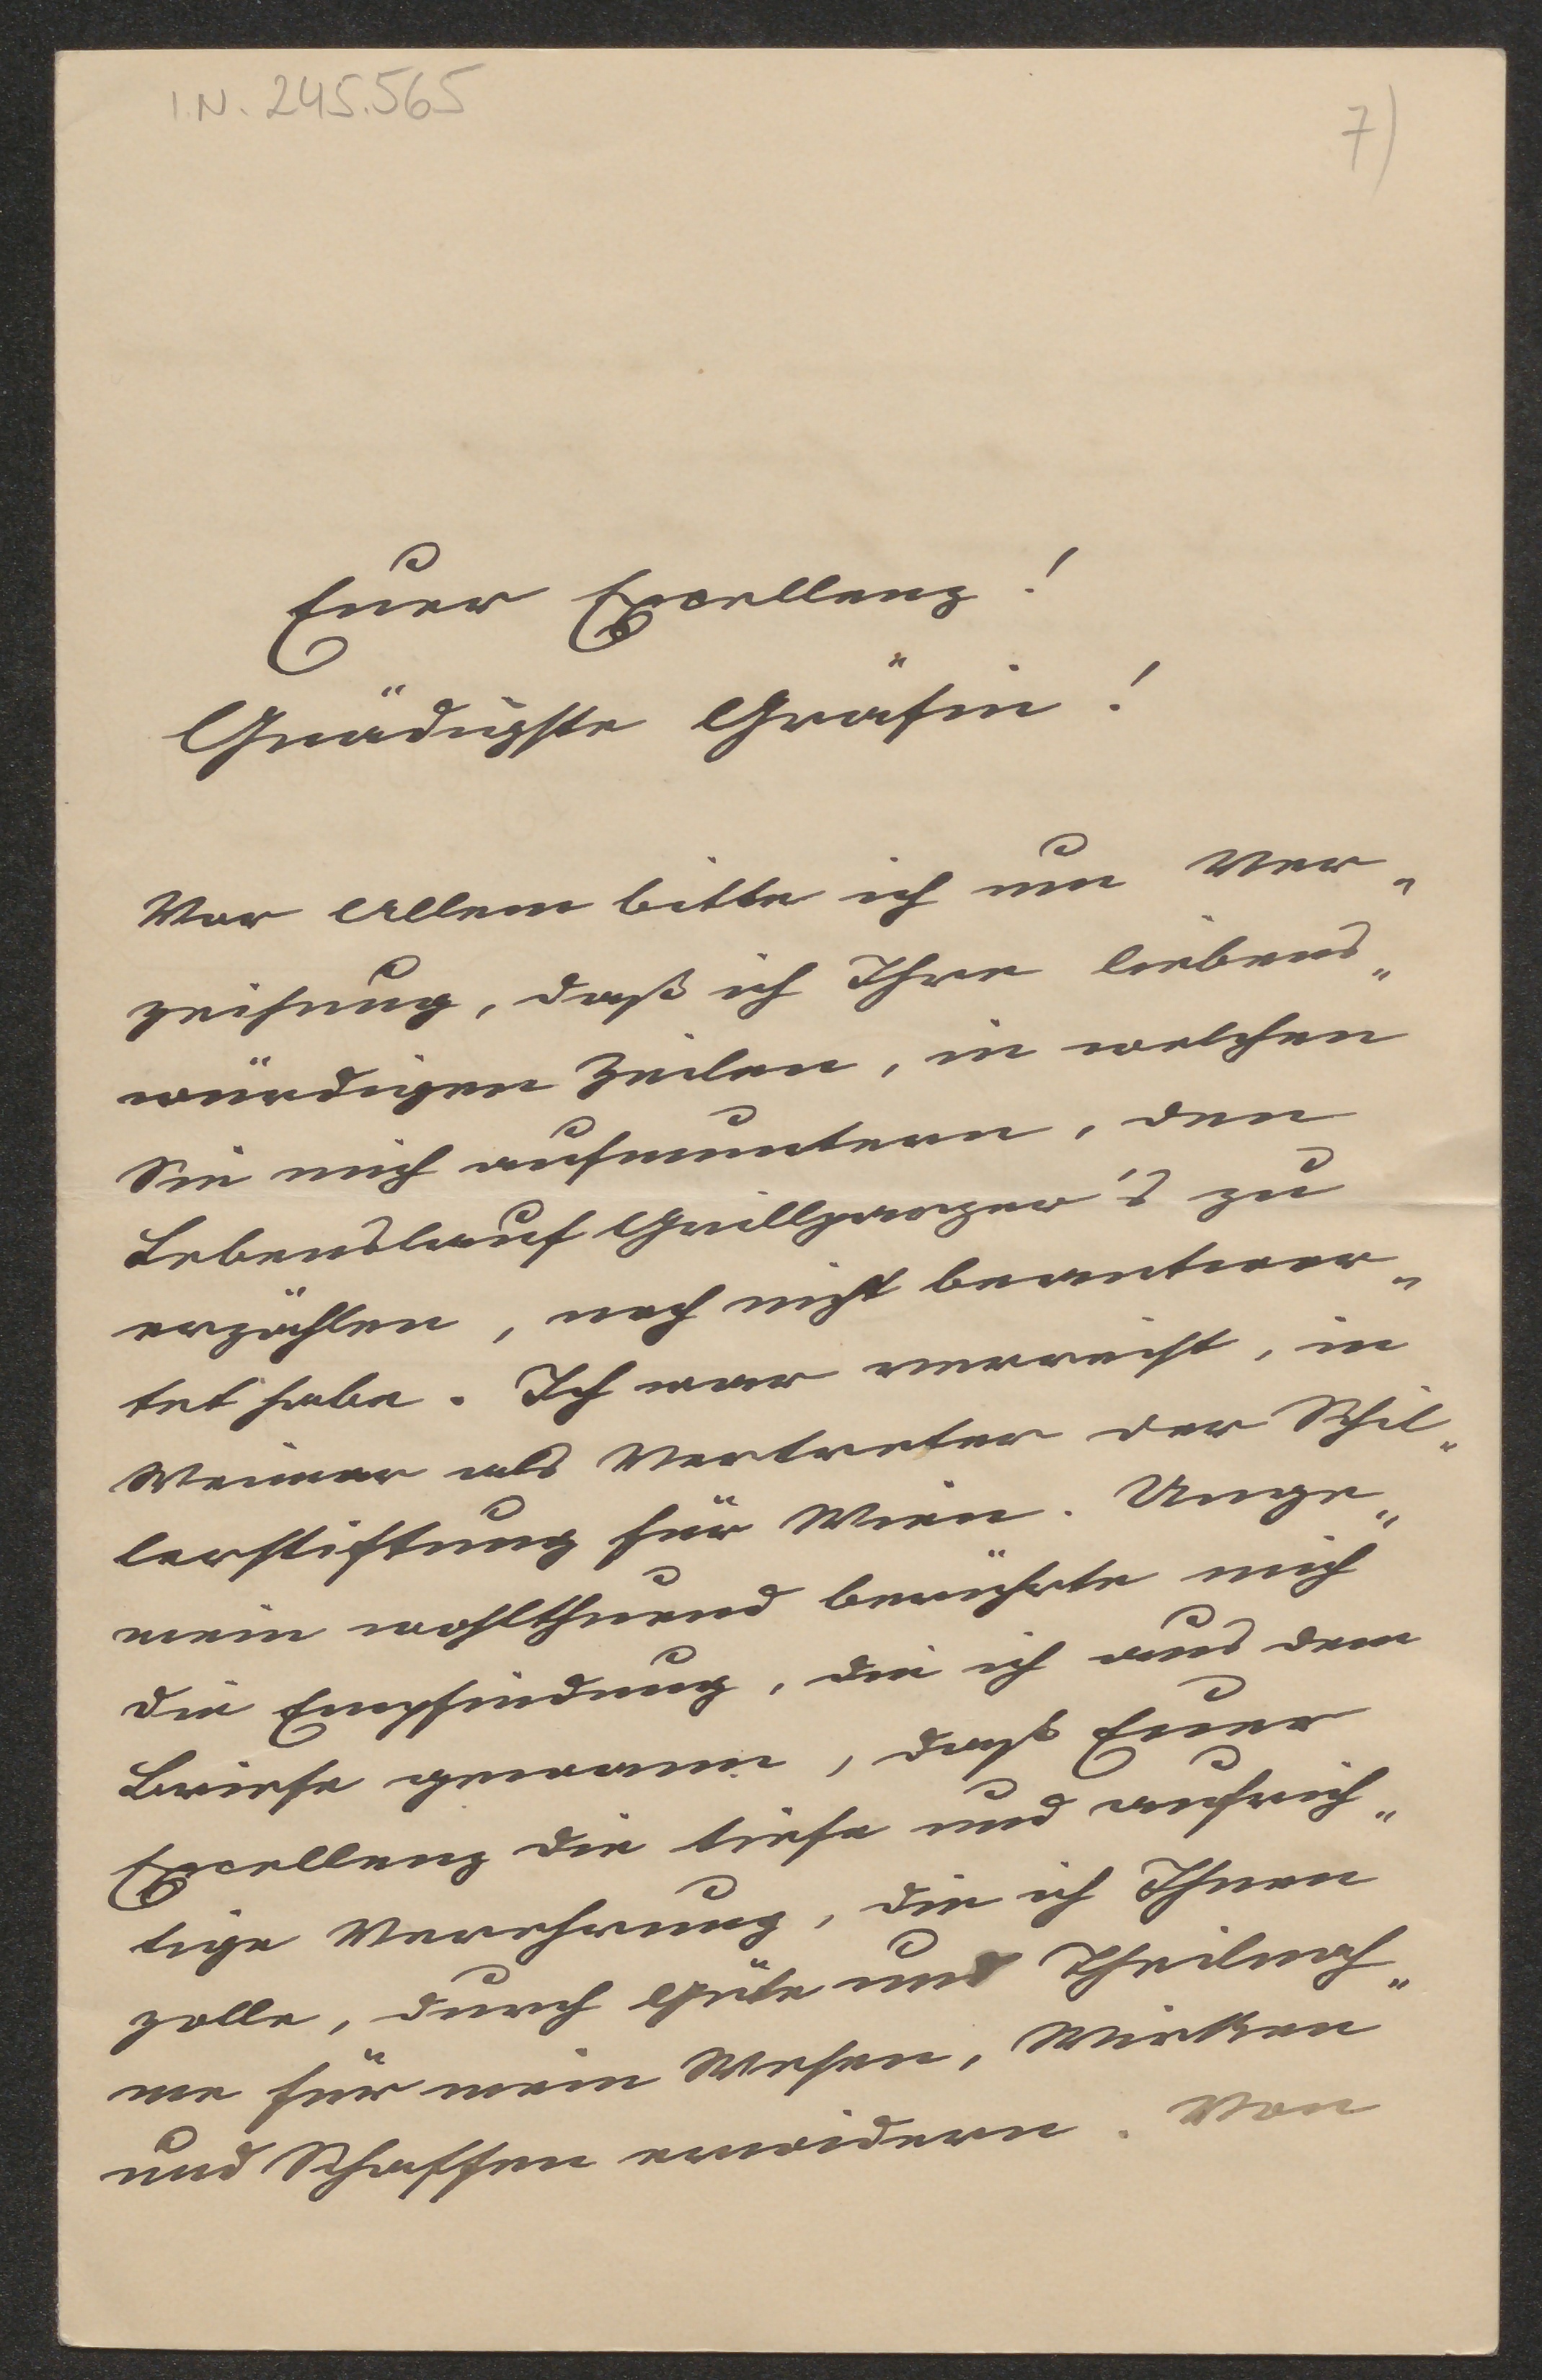 I.N. 245.565
7)
Euer Excellenz!
Gnädigste Gräfin!
Vor Allem bitte ich um Ver„
zeihung, daß ich Ihre liebens„
würdigen Zeilen, in welchen
Sie mich aufmuntern, den
Lebenslauf Grillparzer's zu
erzählen, noch nicht beantwor„
tet habe. Ich war verreist, in
Weimar als Vertreter der Schil„
lerstiftung für Wien. Unge„
mein wohlthuend berührte mich
die Empfindung, die ich aus dem
Briefe gewann, daß Euer
Excellenz die tiefe und aufrich„
tige Verehrung, die ich Ihnen
zolle, durch Güte und Theilnah„
me für mein Wesen, Wirken
und Schaffen erwidern. Von